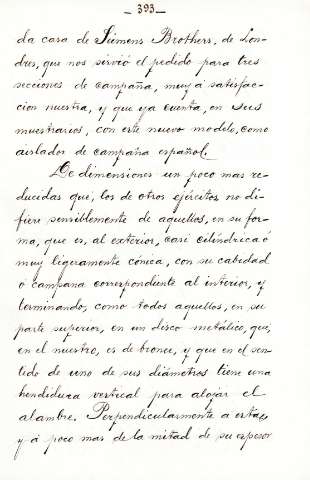 - 393 -
da casa de Siemens Brothers, de Lon-
dres, que nos sirvió el pedido para tres
secciones de campaña, muy á satisfac-
cion nuestra, y que ya cuenta, en sus
muestrarios, con este nuevo modelo, como
aislador de campaña español.
De dimensiones un poco mas re-
ducidas que, los de otros ejércitos no di-
fiere sensiblemente de aquellos, en su for-
ma, que es, al exterior, casi cilíndrica ó
muy ligeramente cónica, con su cabidad
ó campana correspondiente al interior, y
terminando, como todos aquellos, en su
parte superior, en un disco metálico, que,
en el nuestro, es de bronce, y que en el sen-
tido de uno de sus diámetros tiene una
hendidura vertical para alojar el
alambre. Perpendicularmente a esta,
y á poco mas de la mitad de su espesor